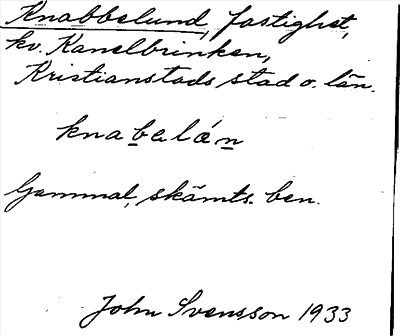 Knabbelund, fastighet,
kv. Kanelbrinken,
Kristianstads stad o. län.
knabelán
Gammal, skämts. ben.
John Svensson 1933